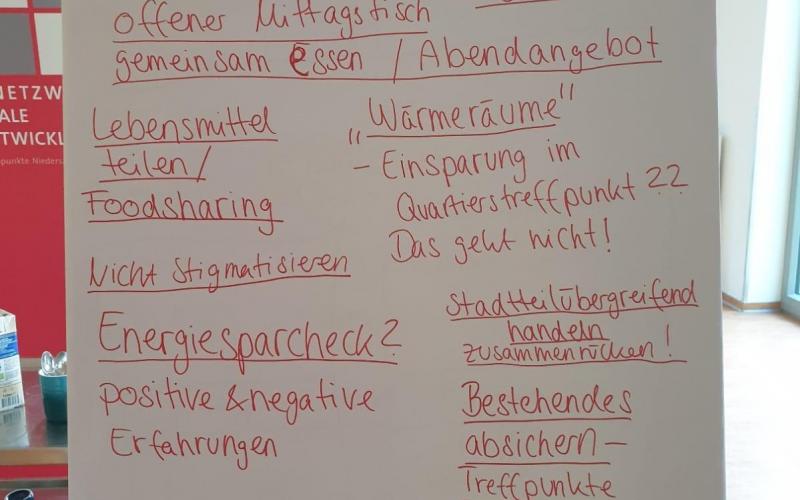 offener Mittagstisch
gemeinsam Essen / Abendangebot
Lebensmittel
teilen/
Foodsharing
Nicht Stigmatisieren
Energiesparcheck?
positive & negative
Erfahrungen
"Wärmeräume"
- Einsparung im
Quartierstreffpunkt ??
Das geht nicht!
Stadtteilübergreifend
handeln
zusammenrücken!
Bestehendes
absichern -
Treffpunkte
NETZW
ALE
TWICKL
punkte Nieders